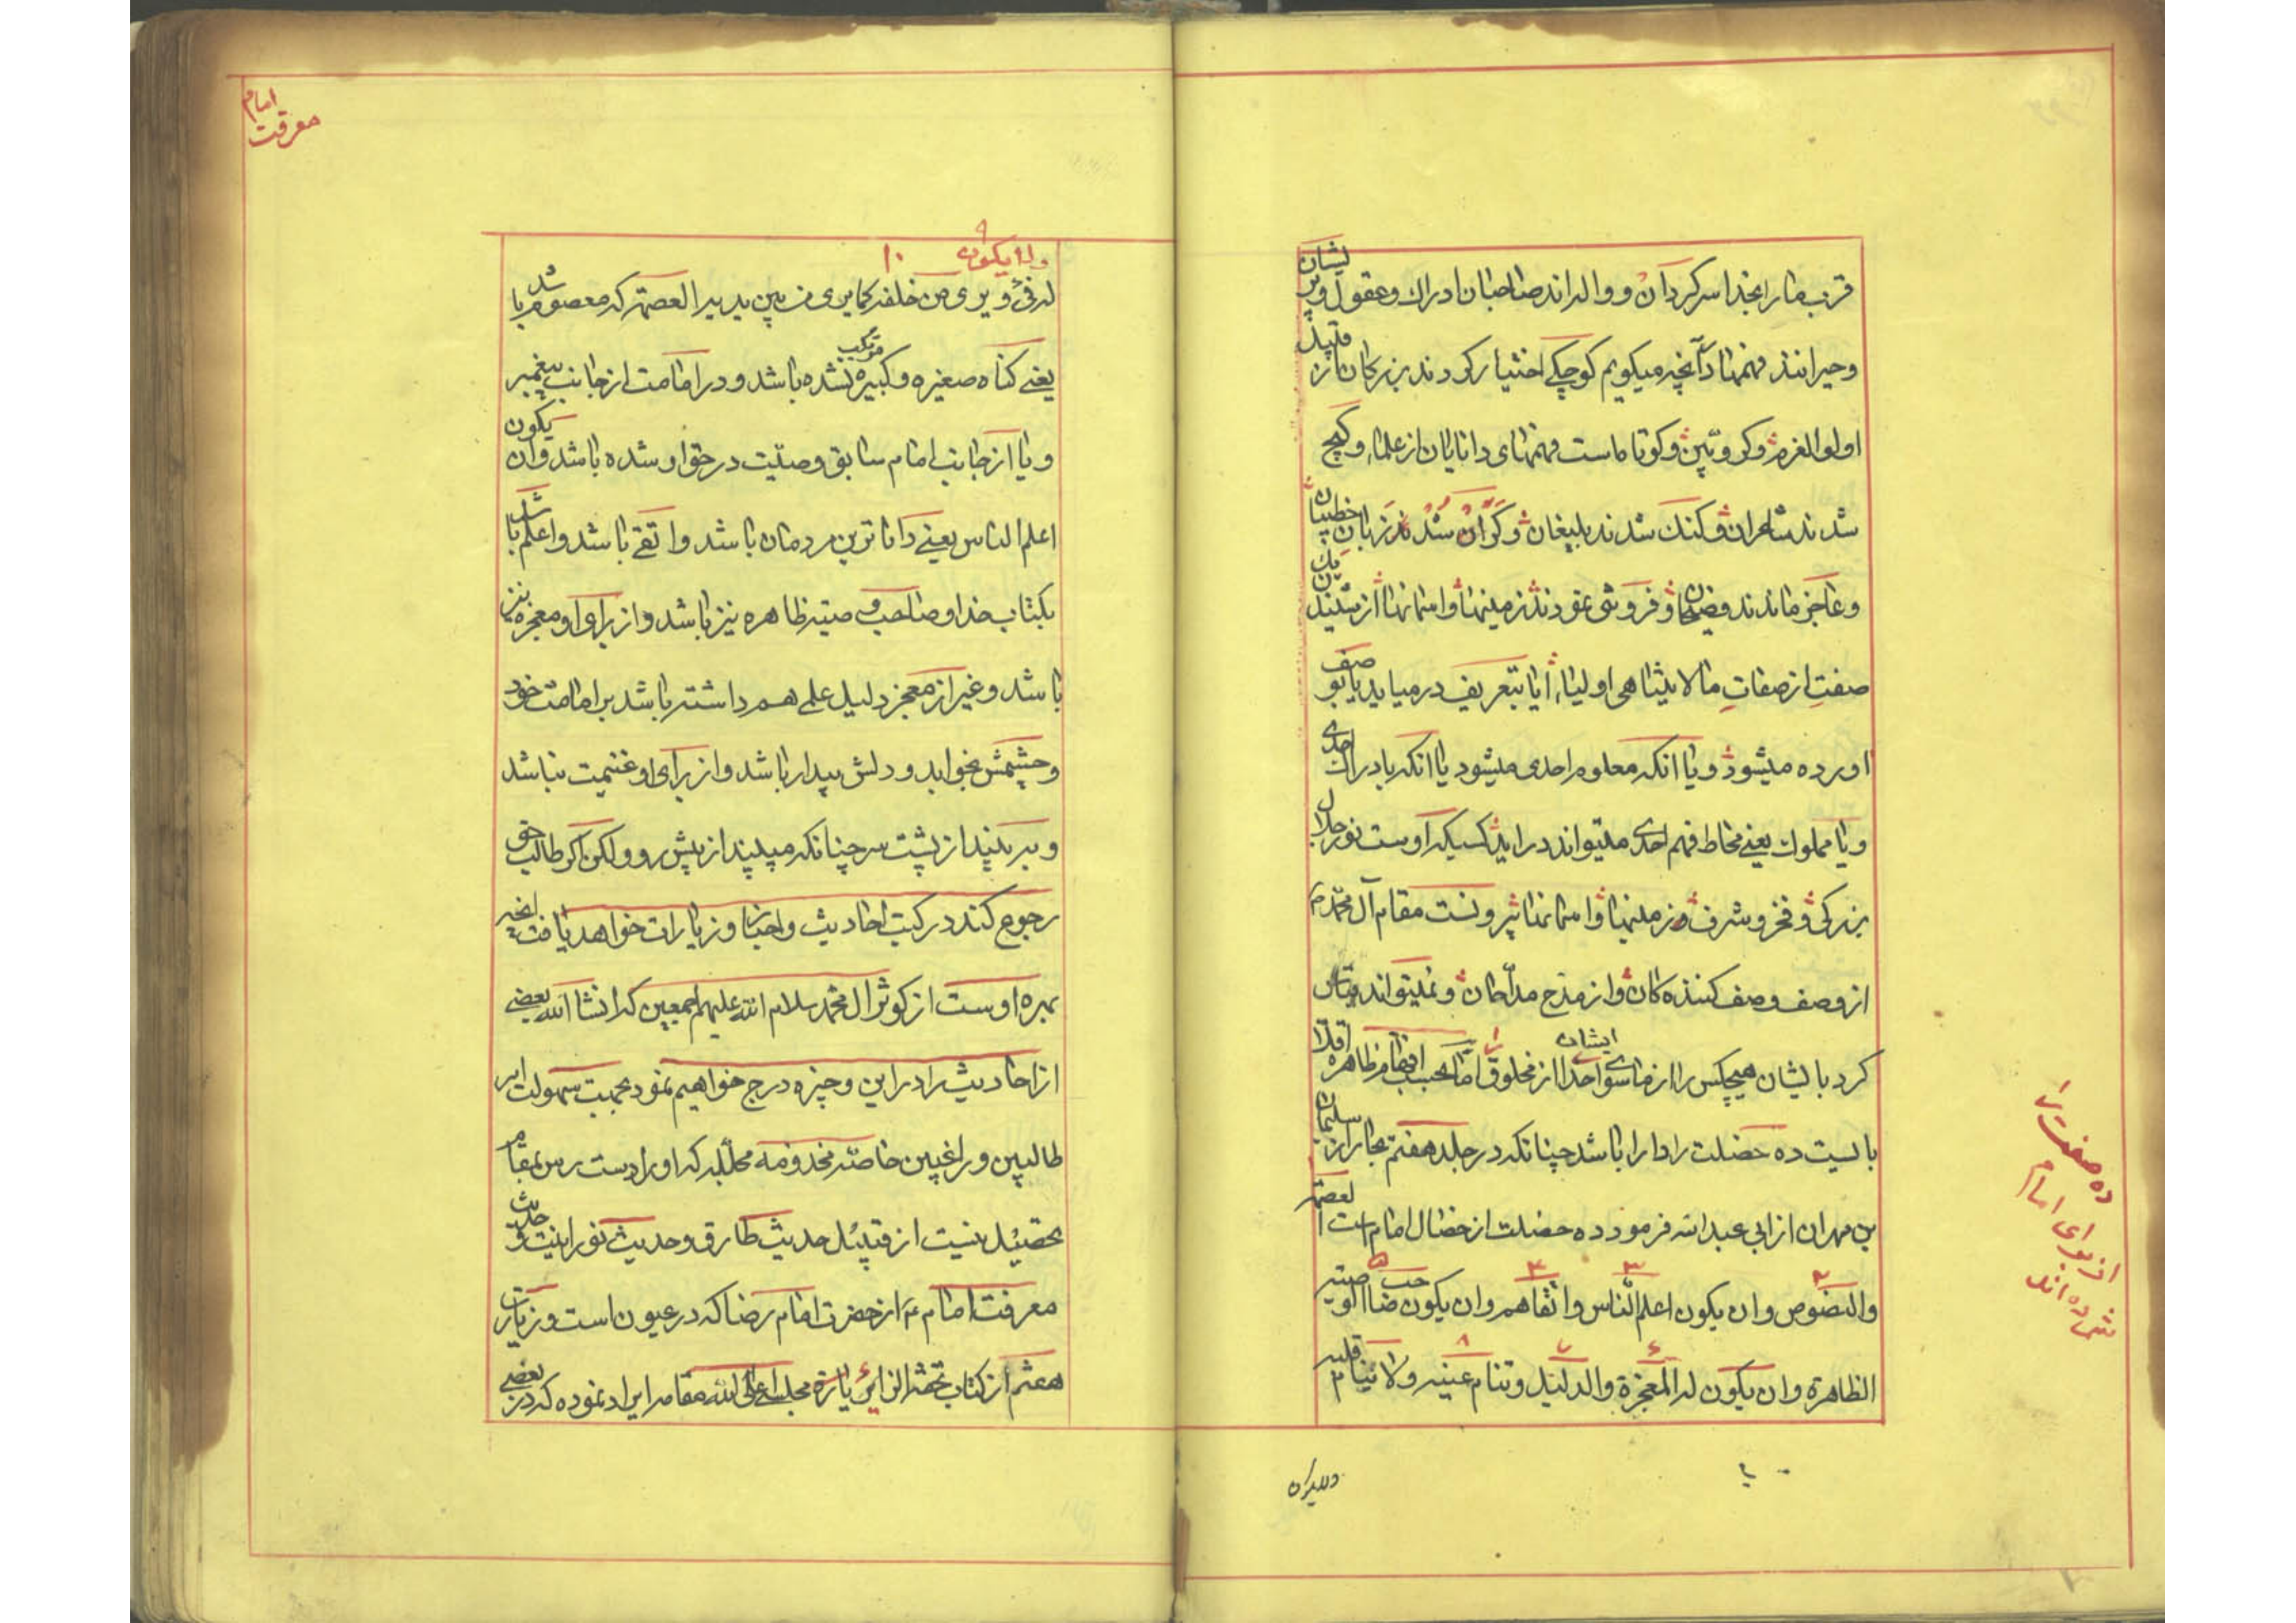 قرب ما را بخدا سرکردان و واله اند صاحبان ادراک و عقول و پریشان
و حیرانند فهمها در آنچه میکویم کوچکی اختیار کردند بزرکان از قبیل
اولوالعزم و کروبین و کوتاه است فهمهای دانایان از علماء و کیج
شدند شاعران و کنک شدند بلیغان و کران شدند زبان خطیبان
و عاجز ماندند فصیحان و فروتنی نمودند زمینها و اسمانها از شنیدن یک
صفت از صفات مالایتناهی اولیاء ایا بتعریف در میاید یا بوصف
اورده میشود و یا انکه معلوم احدی میشود یا انکه بادراک احدی
و یا مملوک یعنی محاط فهم احدی میتواند دراید کسیکه اوست نور جلال
بزرکی و فخر و شرف و زمینها و اسمانها بیرونست مقام آل محمد
از وصف وصف کننده کان و از مدح مداحان و نمیتواند قیاس
کرد با یشان هیچکس را از ماسوای ایشان احدا از مخلوق اما بحسب ظاهره اقلا
بایست ده خصلت را دارا باشد چنانکه در جلد هفتم بحار از سلیمان
بن مهران از ابی عبدالله فرمود ده خصلت از خصال امام است العصمة
والنصوص وان یکون اعلم الناس واتقاهم وان یکون صاحب الوصیة
الظاهرة وان یکون له المعجزة والدلیل وتنام عینه ولا ینام قلبه
ده صفت را
از برای امام
شمرده اند
ولایکون
امام
معرفت
ولا یکون ۱۰
له فیء ویری من خلفه کما یری من بین یدیه العصمة که معصوم باشد
یعنی کناه صغیره و کبیره مرتکب نشده باشد و در امامت از جانب پیغمبر
و یا از جانب امام سابق وصیت در حق او شده باشد وان یکون
اعلم الناس یعنی داناترین مردمان باشد و اتقی باشد و اعلم باشد
بکتاب خدا و صاحب وصیته ظاهره نیز باشد و از برای او معجزه نیز
باشد و غیر از معجز دلیل علمی هم داشته باشد بر امامت خود
و چشمش بخوابد و دلش بیدار باشد و از برای او غنیمت نباشد
و ببیند از پشت سر چنانکه میبیند از پیش رو ولکن اکر طالب حق
رجوع کند در کتب احادیث و اخبار و زیارات خواهد یافت انچه
بهره اوست از کوثر ال محمد سلام الله علیهم اجمعین که انشا الله بعضی
از احادیث را در این وجیزه درج خواهیم نمود بجهت سهولت امر
طالبین و راغبین خاصه مخدومه مجلله که او را دست رس بمقام
تحصیل نیست از قبیل حدیث طارق و حدیث نورانیت و حدیث
معرفت امام ع از حضرت امام رضا که در عیون است و زیارت
هفتم از کتاب تحفة الزائر زیارة مجلسی اعلی الله مقامه ایراد نموده که در بعضی